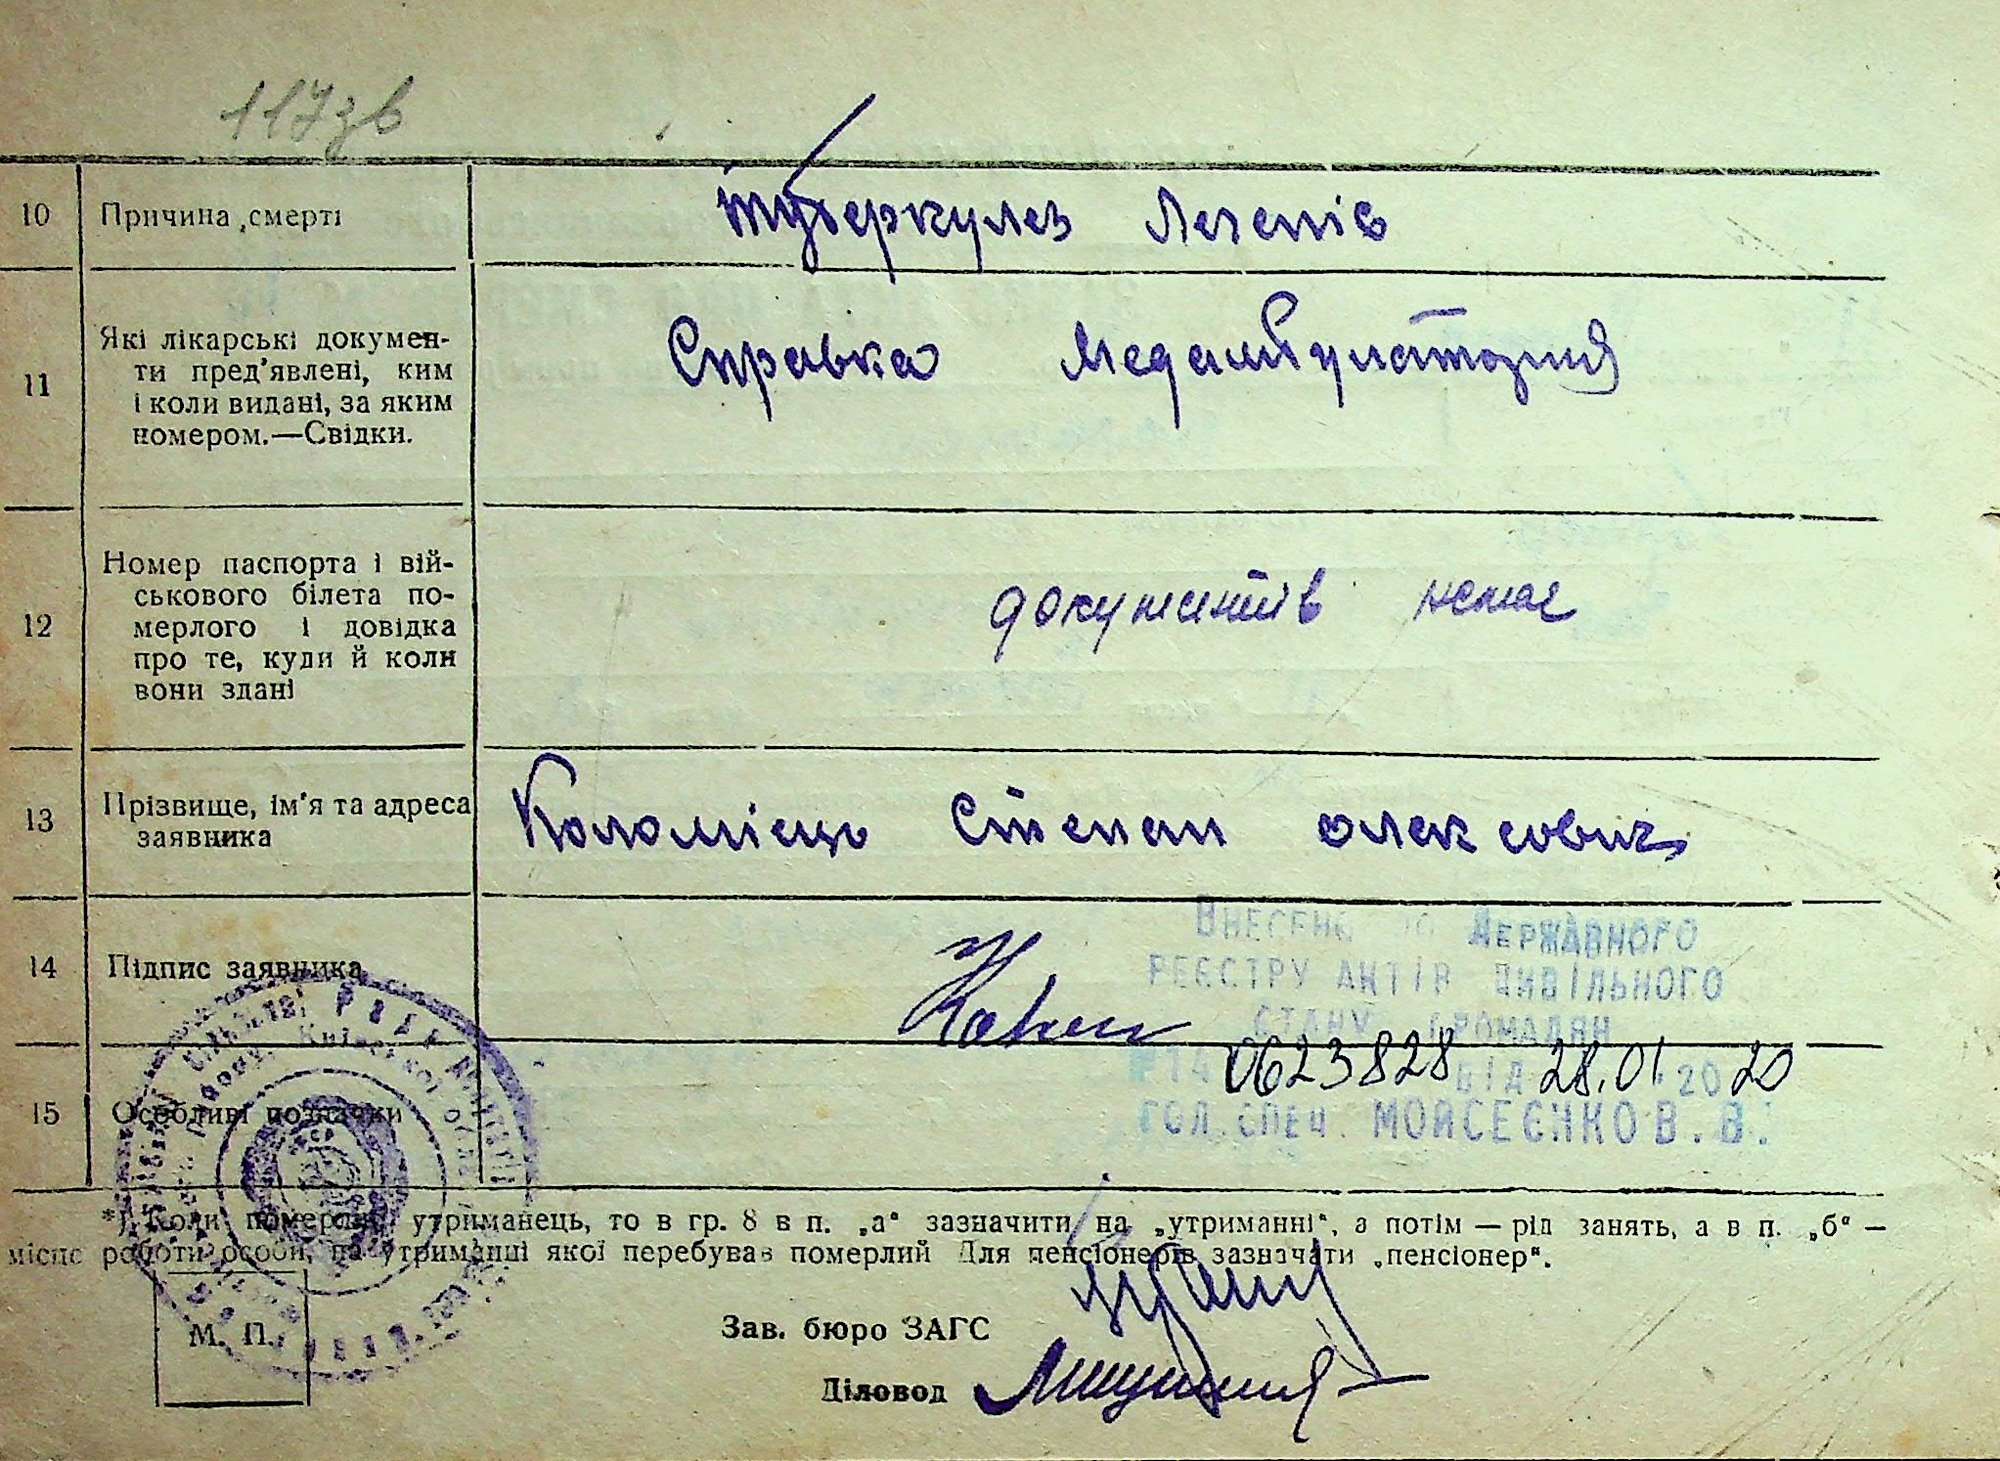 117зв
10 Причина смерті Туберкулез легенів
11 Які лікарські докумен-
ти пред'явлені, ким
і коли видані, за яким
номером.—Свідки.
Справка Медамбулатория
12 Номер паспорта і вій-
ськового білета по-
мерлого і довідка
про те, куди й коли
вони здані
документів немає
13 Прізвище, ім'я та адреса
заявника
Коломієць Степан Олексович
14 Підпис заявника
Внесено до Державного
реєстру актів цивільного
стану громадян
№14 0623828 від 28.01.2020
гол.спец. Мойсеєнко В.В.
15 Особливі позначки
*) Коли померлий утриманець, то в гр. 8 в п. „а“ зазначити на „утриманні“, а потім — рід занять, а в п. „б“ —
місце роботи особи, на утриманні якої перебував померлий Для пенсіонерів зазначати „пенсіонер“.
М. П.
Зав. бюро ЗАГС
Діловод